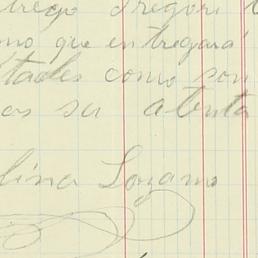 trego Gregori
mo que entregará
tades como son
os su atenta
lina Lozano